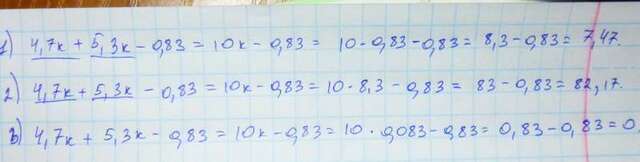 1) 4,7к + 5,3к - 0,83 = 10к - 0,83 = 10 · 0,83 - 0,83 = 8,3 - 0,83 = 7,47.
2) 4,7к + 5,3к - 0,83 = 10к - 0,83 = 10 · 8,3 - 0,83 = 83 - 0,83 = 82,17.
3) 4,7к + 5,3к - 0,83 = 10к - 0,83 = 10 · 0,083 - 0,83 = 0,83 - 0,83 = 0